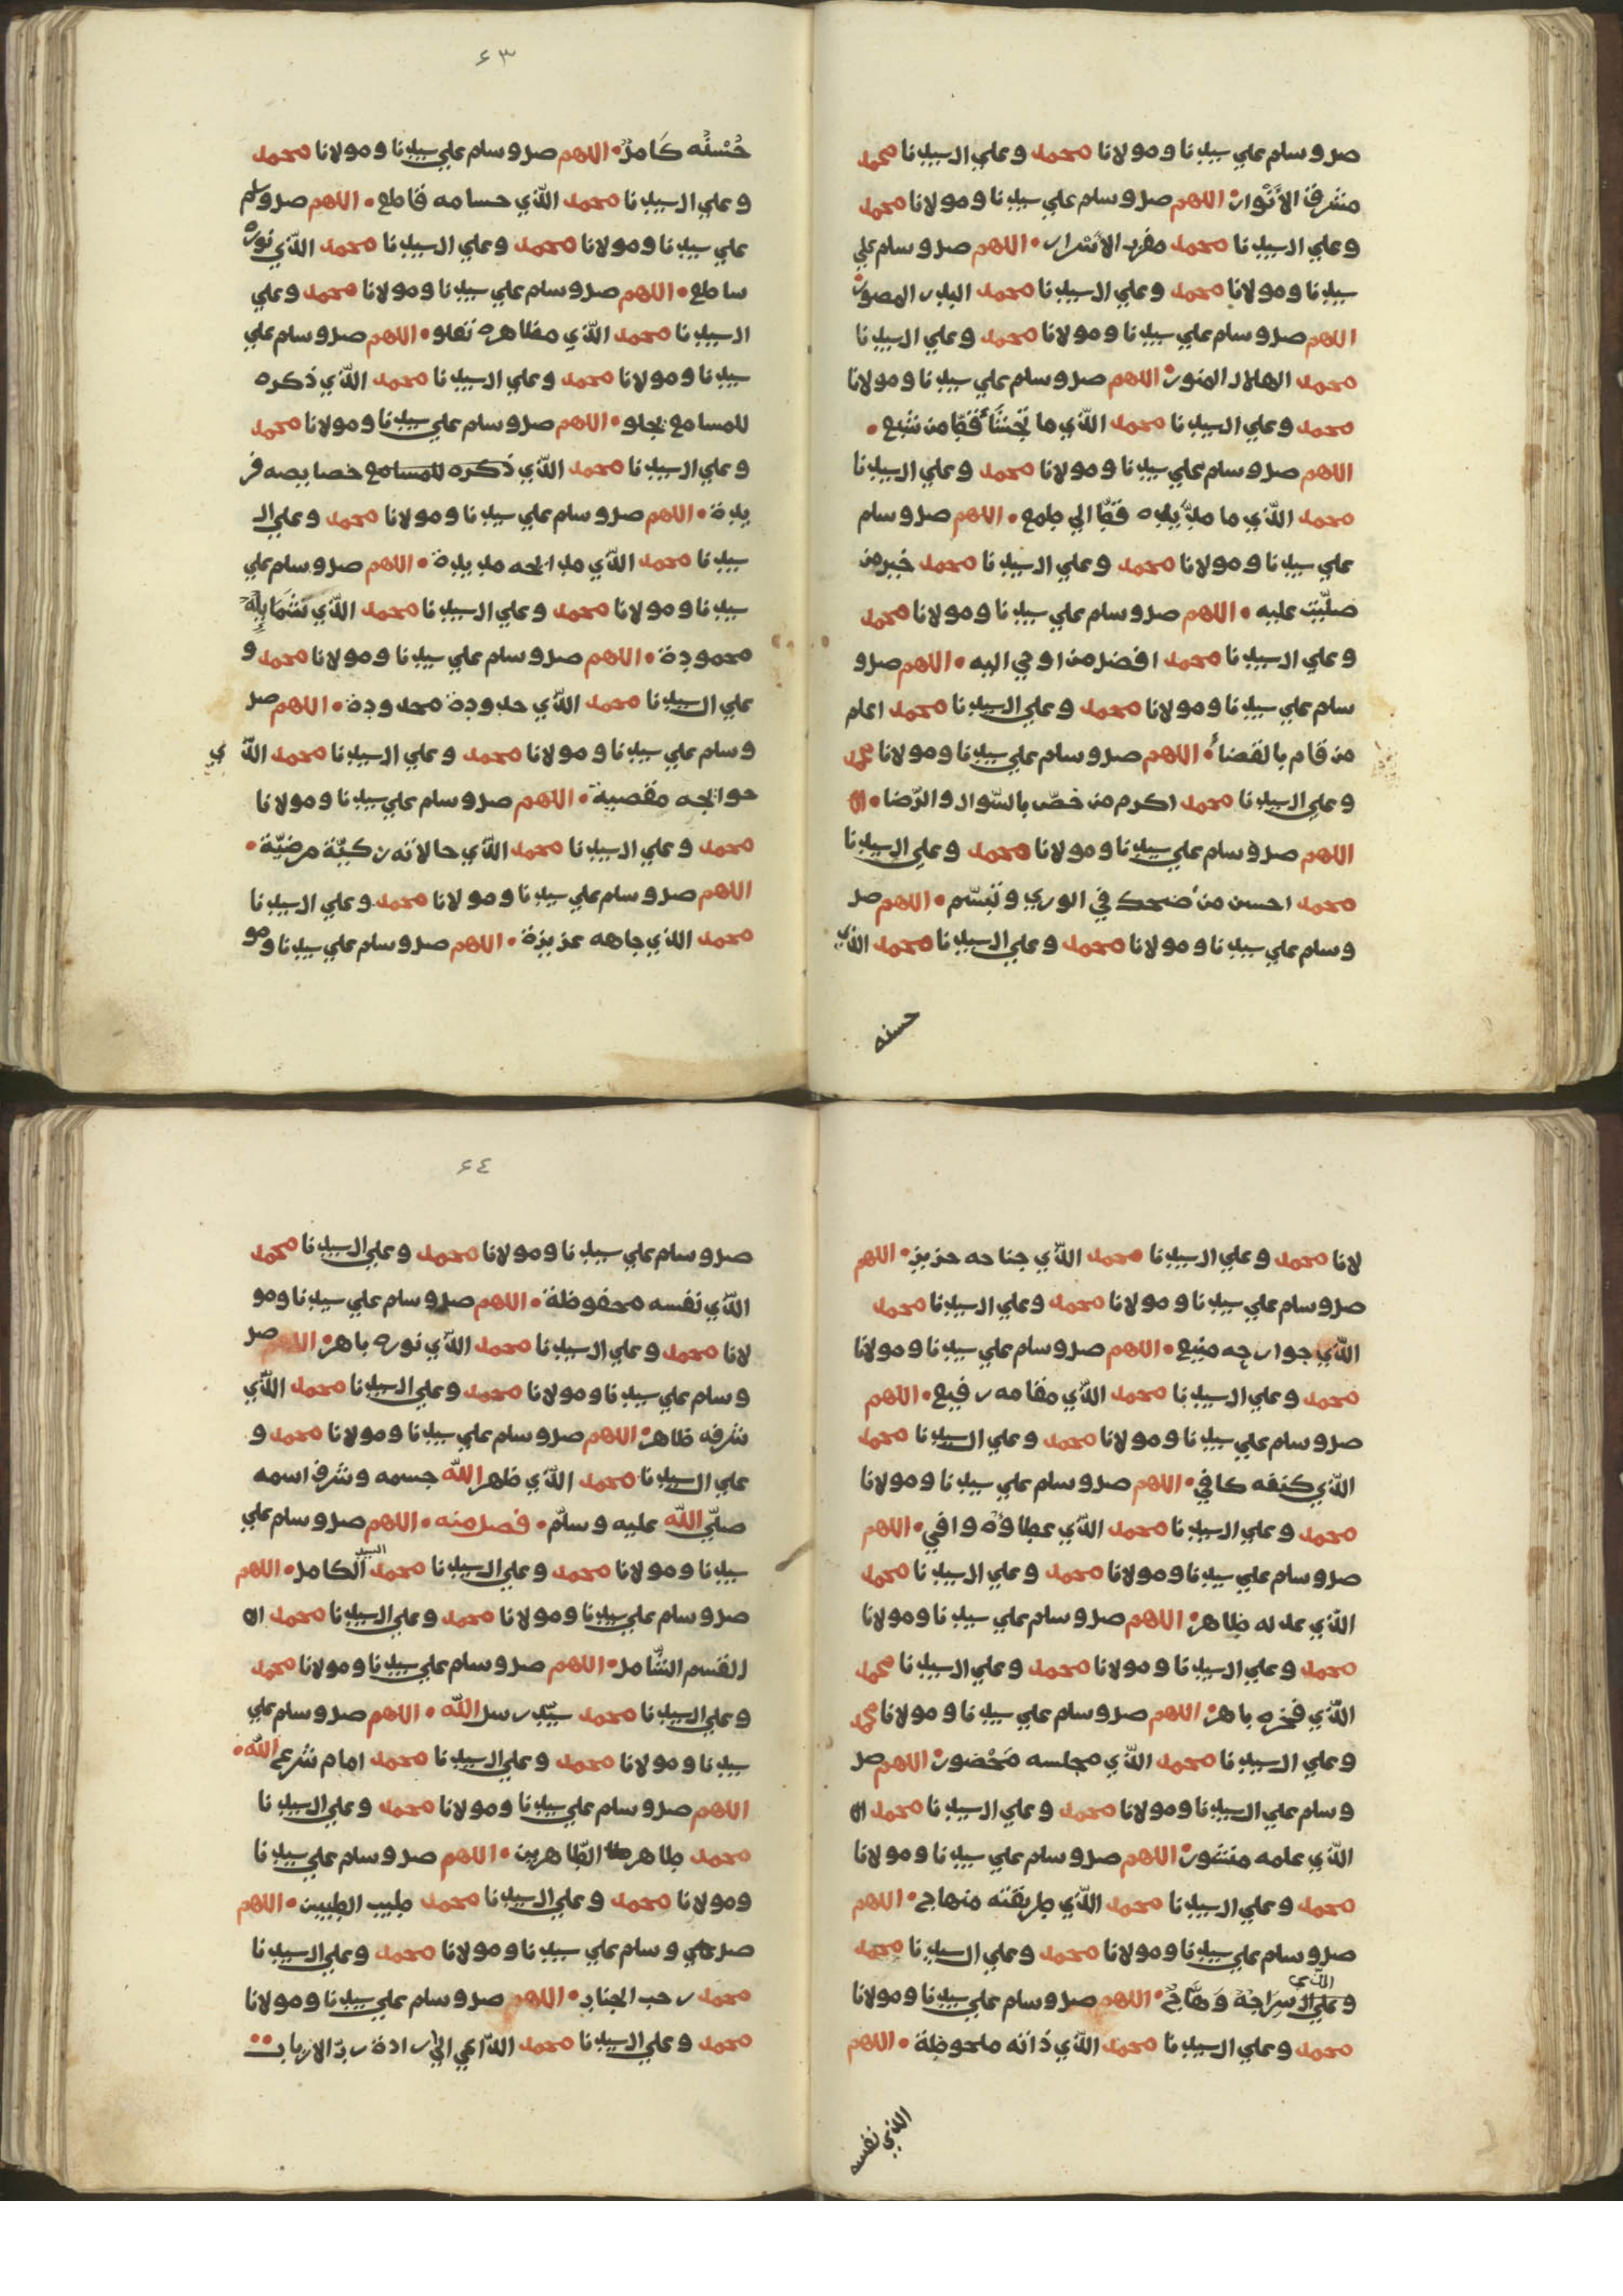 صل وسلم علي سيدنا ومولانا محمد وعلي ال سيدنا محمد
مشرق الأَنْوار • اللهم صل وسلم علي سيدنا ومولانا محمد
وعلي ال سيدنا محمد مقرب الأسْرار • اللهم صل وسلم علي
سيدنا ومولانا محمد وعلي ال سيدنا محمد البدر المصور •
اللهم صل وسلم علي سيدنا ومولانا محمد وعلي ال سيدنا
محمد الهلال المنور • اللهم صل وسلم علي سيدنا ومولانا
محمد وعلي ال سيدنا محمد الّذي ما تجشّأ قطّ من شبع •
اللهم صل وسلم علي سيدنا ومولانا محمد وعلي ال سيدنا
محمد الّذي ما مدّ يده قطّ الي طمع • اللهم صل وسلم
علي سيدنا ومولانا محمد وعلي ال سيدنا محمد خير من
صلّيت عليه • اللهم صل وسلم علي سيدنا ومولانا محمد
وعلي ال سيدنا محمد افضل من اوحي اليه • اللهم صل و
سلم علي سيدنا ومولانا محمد وعلي ال سيدنا محمد اعلم
من قام بالقضاء • اللهم صل وسلم علي سيدنا ومولانا محمد
وعلي ال سيدنا محمد اكرم من خصّ بالسّوال والرّضا •
اللهم صل وسلم علي سيدنا ومولانا محمد وعلي ال سيدنا
محمد احسن من ضحك في الوري وتبسّم • اللهم صل
وسلم علي سيدنا ومولانا محمد وعلي ال سيدنا محمد الذي
حسنه
٦٣
حُسْنُه كَامل • اللهم صل وسلم علي سيدنا ومولانا محمد
وعلي ال سيدنا محمد الّذي حسامه قاطع • اللهم صل وسلم
علي سيدنا ومولانا محمد وعلي ال سيدنا محمد الّذي نوره
ساطع • اللهم صل وسلم علي سيدنا ومولانا محمد وعلي
ال سيدنا محمد الّذي مظاهره تعلو • اللهم صل وسلم علي
سيدنا ومولانا محمد وعلي ال سيدنا محمد الّذي ذكره
للمسامع يجلو • اللهم صل وسلم علي سيدنا ومولانا محمد
وعلي ال سيدنا محمد الّذي ذكره للمسامع خصايصه فر
يدة • اللهم صل وسلم علي سيدنا ومولانا محمد وعلي ال
سيدنا محمد الّذي مدايحه مديدة • اللهم صل وسلم علي
سيدنا ومولانا محمد وعلي ال سيدنا محمد الّذي شمايله
محمودة • اللهم صل وسلم علي سيدنا ومولانا محمد و
علي ال سيدنا محمد الّذي حدودة محدودة • اللهم صل
وسلم علي سيدنا ومولانا محمد وعلي ال سيدنا محمد الّذي
حوايجه مقصية • اللهم صل وسلم علي سيدنا ومولانا
محمد وعلي ال سيدنا محمد الّذي حالاته زكيّة مرضيّة •
اللهم صل وسلم علي سيدنا ومولانا محمد وعلي ال سيدنا
محمد الذي جاهه عزيزة • اللهم صل وسلم علي سيدنا ومو
لانا محمد وعلي ال سيدنا محمد الّذي جناحه حزيز • اللهم
صل وسلم علي سيدنا ومولانا محمد وعلي ال سيدنا محمد
الّذي جوارحه منيع • اللهم صل وسلم علي سيدنا ومولانا
محمد وعلي ال سيدنا محمد الّذي مقامه رفيع • اللهم
صل وسلم علي سيدنا ومولانا محمد وعلي ال سيدنا محمد
الّذي كنفه كافي • اللهم صل وسلم علي سيدنا ومولانا
محمد وعلي ال سيدنا محمد الّذي عطاؤه وافي • اللهم
صل وسلم علي سيدنا ومولانا محمد وعلي ال سيدنا محمد
الّذي عدله ظاهر • اللهم صل وسلم علي سيدنا ومولانا
محمد وعلي ال سيدنا ومولانا محمد وعلي ال سيدنا محمد
الّذي فخره باهر • اللهم صل وسلم علي سيدنا ومولانا محمد
وعلي ال سيدنا محمد الّذي مجلسه مَحْضور • اللهم صل
وسلم علي ال سيدنا ومولانا محمد وعلي ال سيدنا محمد ال
الّذي علمه منشور • اللهم صل وسلم علي سيدنا ومولانا
محمد وعلي ال سيدنا محمد الّذي طريقته منهاج • اللهم
صل وسلم علي سيدنا ومولانا محمد وعلي ال سيدنا محمد
الّذي
وعلي ال سِرَاجُهُ وَهَّاجٌ • اللهم صل وسلم علي سيدنا ومولانا
محمد وعلي ال سيدنا محمد الّذي ذاته ملحوظة • اللهم
الذي نفسه
٦٤
صل وسلم علي سيدنا ومولانا محمد وعلي ال سيدنا محمد
الّذي نفسه محفوظة • اللهم صل وسلم علي سيدنا ومو
لانا محمد وعلي ال سيدنا محمد الّذي نوره باهر • اللهم صل
وسلم علي سيدنا ومولانا محمد وعلي ال سيدنا محمد الّذي
شرفه ظاهر • اللهم صل وسلم علي سيدنا ومولانا محمد و
علي ال سيدنا محمد الّذي طهر اللّه جسمه وشرف اسمه
صلّي اللّه عليه وسلّم • فصل منه • اللهم صل وسلم علي
سيدنا ومولانا محمد وعلي ال سيدنا محمد السيد الكامل • اللهم
صل وسلم علي سيدنا ومولانا محمد وعلي ال سيدنا محمد ال
القسم الشّامل • اللهم صل وسلم علي سيدنا ومولانا محمد
وعلي ال سيدنا محمد سيّد رسل اللّه • اللهم صل وسلم علي
سيدنا ومولانا محمد وعلي ال سيدنا محمد امام شرع اللّه •
اللهم صل وسلم علي سيدنا ومولانا محمد وعلي ال سيدنا
محمد طاهر الطّاهرين • اللهم صل وسلم علي سيدنا
ومولانا محمد وعلي ال سيدنا محمد طيب الطيبين • اللهم
صل وسلم علي سيدنا ومولانا محمد وعلي ال سيدنا
محمد رحب الجناب • اللهم صل وسلم علي سيدنا ومولانا
محمد وعلي ال سيدنا محمد الدّاعي الي ارادة ربّ الارباب ••